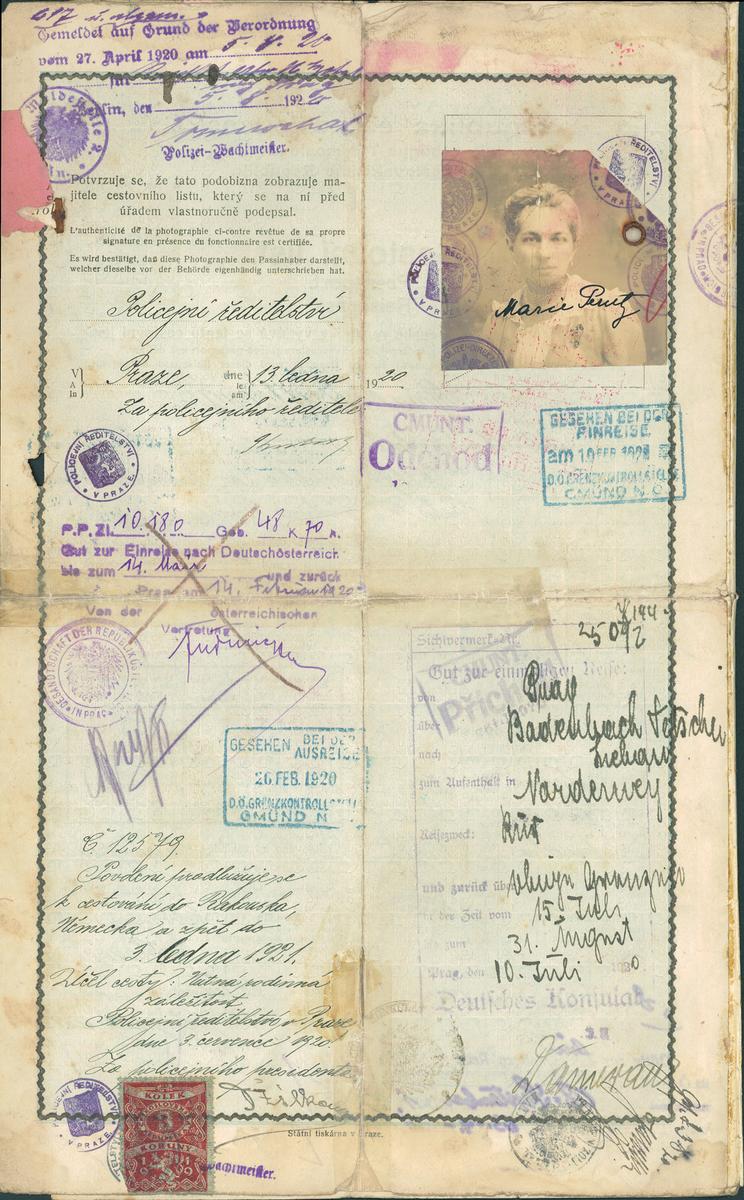 Gemeldet auf Grund der Verordnung
vom 27. April 1920 am 5. 8. 20
Berlin, den 5. 8. 1920
Polizei-Wachtmeister.
Potvrzuje se, že tato podobizna zobrazuje ma-
jitele cestovního listu, který se na ní před
úřadem vlastnoručně podepsal.
L'authenticité de la photographie ci-contre revêtue de sa propre
signature en présence du fonctionnaire est certifiée.
Es wird bestätigt, daß diese Photographie den Passinhaber darstellt,
welcher dieselbe vor der Behörde eigenhändig unterschrieben hat.
Policejní ředitelství
V
A
In
Praze, dne
le
am
13. ledna 1920
Za policejního ředitele
POLICEJNÍ ŘEDITELSTVÍ V PRAZE
P.P. Zl. 10.180 Geb. 48 K 70 h.
Gut zur Einreise nach Deutschösterreich
bis zum 14. März und zurück
Prag am 14. Februar 1920
Von der österreichischen
Vertretung
GESANDTSCHAFT DER REPUBLIK
IN PRAG
GESEHEN BEI DER
AUSREISE
26. FEB. 1920
D.Ö. GRENZKONTROLL
GMÜND N
Č 12579.
Povolení prodlužuje se
k cestování do Rakouska,
Německa a zpět do
3. ledna 1921.
Účel cesty: Nutná rodinná
záležitost
Policejní ředitelství v Praze
dne 3. července 1920.
Za policejního presidenta
POLICEJNÍ ŘEDITELSTVÍ V PRAZE
KOLEK
KORUNY
1919
Wachtmeister.
Státní tiskárna v Praze.
POLICEJNÍ ŘEDITELSTVÍ V PRAZE
POLICEJNÍ ŘEDITELSTVÍ V PRAZE
Marie Perutz
CMUNT:
Odchod
GESEHEN BEI DER
EINREISE
am 10 FEB. 1920
D.Ö. GRENZKONTROLLSTELLE
GMÜND N.Ö.
Sichtvermerk-Nr.
Gut zur einmaligen Reise:
von Prag
über Bodenbach Tetschen
nach
zum Aufenthalt in Norderney
Reisezweck: Kur
und zurück über
in der Zeit vom 15. Juli
bis zum 31. August
Prag, den 10. Juli 1920
Deutsches Konsulat